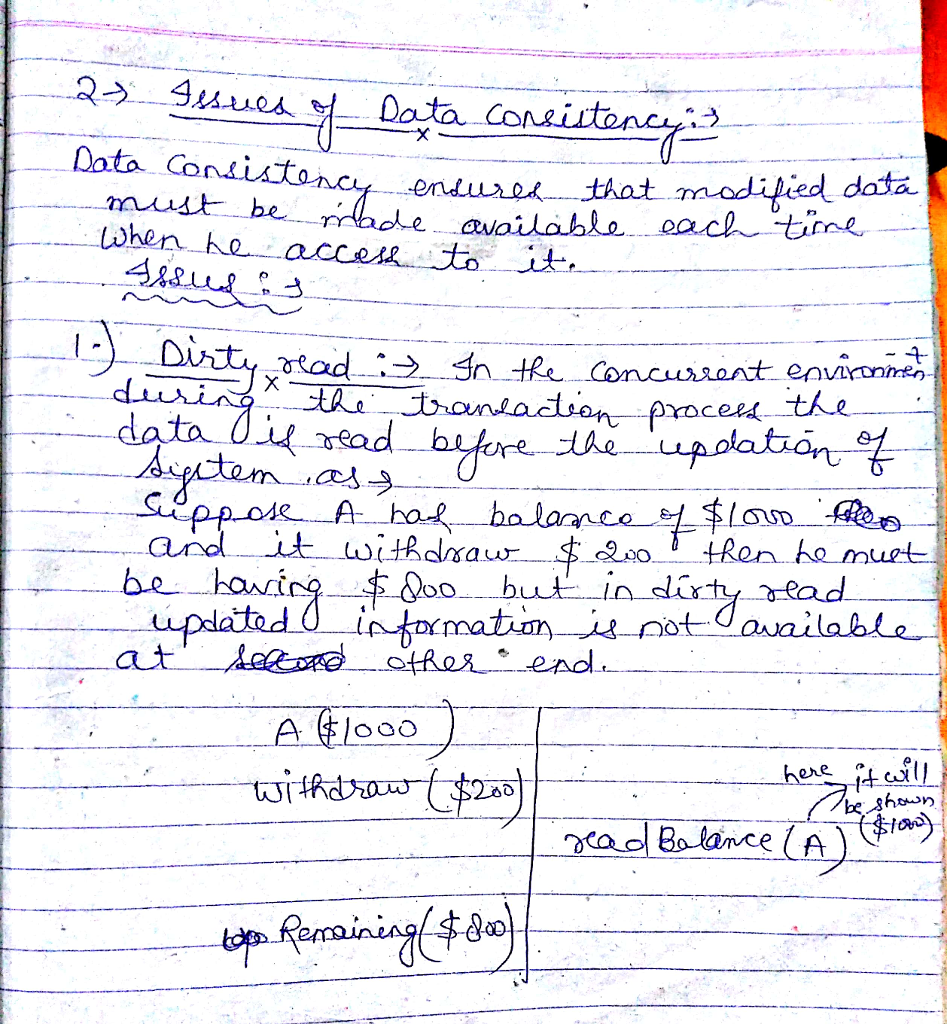 2→ Issues of Data Consistency:→
Data Consistency ensures that modified data
must be made available each time
when he access to it.
Issues :→
1-) Dirty read :→ In the concurrent environment
during the transaction process the
data is read before the updation of
system .as→
Suppose A has balance of $1000
and it withdraw $200 then he must
be having $800 but in dirty read
updated information is not available
at other end.
A ($1000)
withdraw ($200)
here it will
be shown
($1000)
read Balance (A)
Remaining ($800)